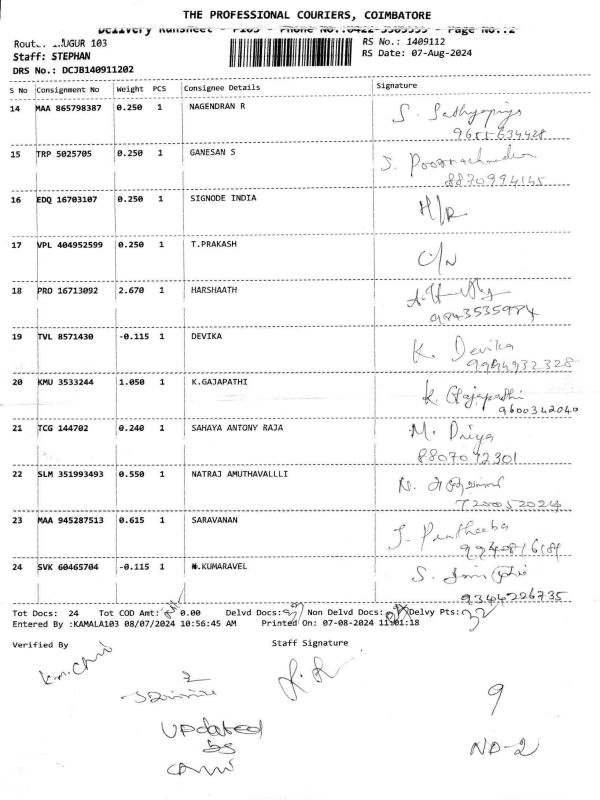 THE PROFESSIONAL COURIERS, COIMBATORE
Delivery Runsheet - P103 - Phone No.:0422-3505555 - Page No.:2
Route: IRUGUR 103 RS No.: 1409112
Staff: STEPHAN RS Date: 07-Aug-2024
DRS No.: DCJB140911202
S No Consignment No Weight PCS Consignee Details Signature
14 MAA 865798387 0.250 1 NAGENDRAN R S. Sathyapriya
9655634428
15 TRP 5025705 0.250 1 GANESAN S S. Poornachandran
8870994145
16 EDQ 16703107 0.250 1 SIGNODE INDIA H/R
17 VPL 404952599 0.250 1 T.PRAKASH C/N
18 PRO 16713092 2.670 1 HARSHAATH
9843535984
19 TVL 8571430 -0.115 1 DEVIKA K. Devika
9994932328
20 KMU 3533244 1.050 1 K.GAJAPATHI K. Gajapathi
9600342040
21 TCG 144702 0.240 1 SAHAYA ANTONY RAJA M. Priya
8807092301
22 SLM 351993493 0.550 1 NATRAJ AMUTHAVALLLI N.
7200052024
23 MAA 945287513 0.615 1 SARAVANAN J. Pratheeba
24 SVK 60465704 -0.115 1 N.KUMARAVEL S.
9344226735
Tot Docs: 24 Tot COD Amt: 0.00 Delvd Docs: Non Delvd Docs: Delvy Pts: 22
Entered By :KAMALA103 08/07/2024 10:56:45 AM Printed On: 07-08-2024 11:01:18
Verified By Staff Signature
2
9
UPdated
by
ND-2